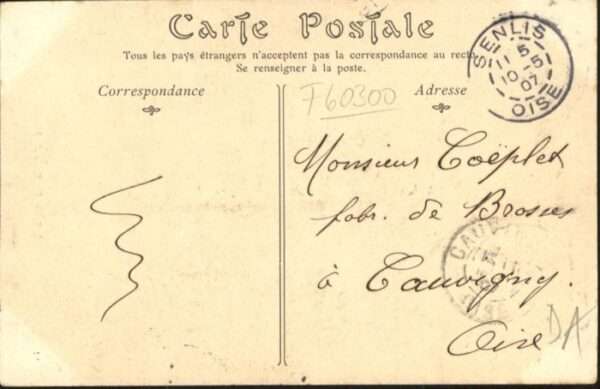 Carte Postale
Tous les pays étrangers n'acceptent pas la correspondance au recto
Se renseigner à la poste.
Correspondance
Adresse
F60300
SENLIS
5
11
10-5
07
OISE
Monsieur Coëplet
fabr. de Brosses
à Cauvigny.
Oise
CAUV
OISE
DA